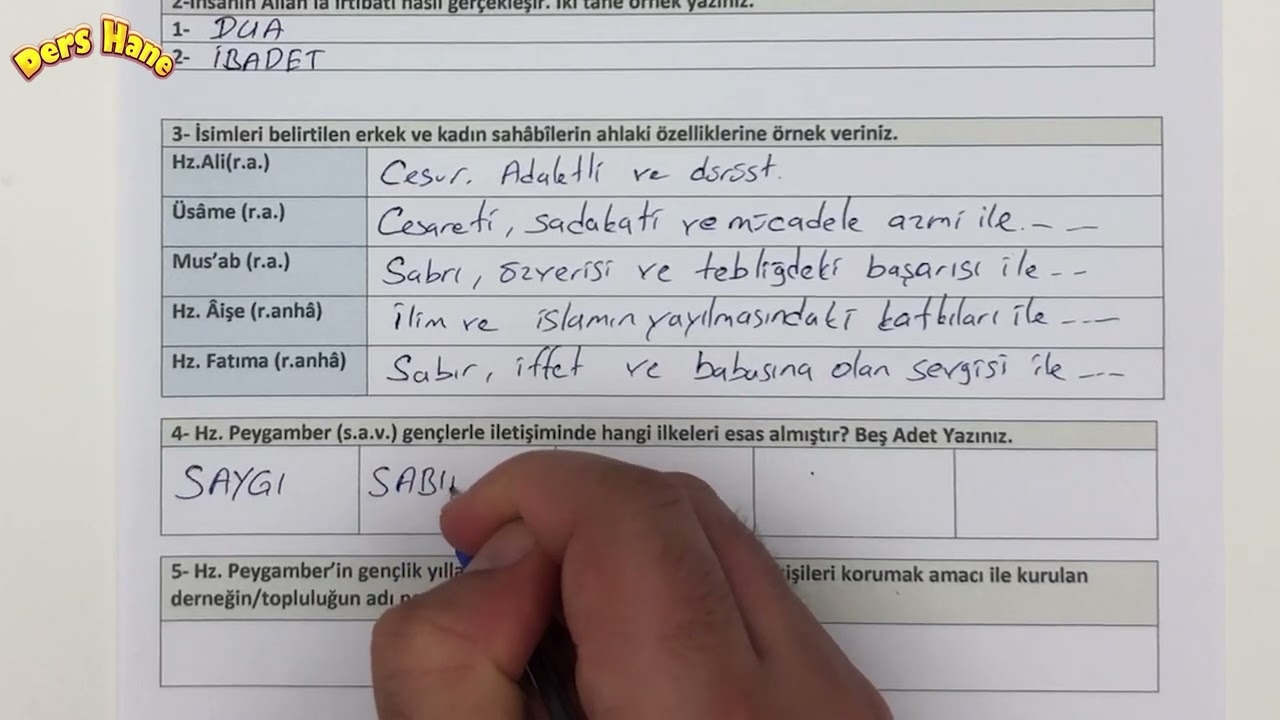 2-İnsanın Allah'la irtibatı nasıl gerçekleşir. İki tane örnek yazınız.
Ders Hane
1- DUA
2- İBADET
3- İsimleri belirtilen erkek ve kadın sahâbîlerin ahlaki özelliklerine örnek veriniz.
Hz.Ali(r.a.) Cesur. Adaletli ve dürüst.
Üsâme (r.a.) Cesareti, sadakati ve mücadele azmi ile. – –
Mus'ab (r.a.) Sabrı, özverisi ve tebliğdeki başarısı ile - -
Hz. Âişe (r.anhâ) İlim ve islamın yayılmasındaki katkıları ile ---
Hz. Fatıma (r.anhâ) Sabır, iffet ve babasına olan sevgisi ile ---
4- Hz. Peygamber (s.a.v.) gençlerle iletişiminde hangi ilkeleri esas almıştır? Beş Adet Yazınız.
SAYGI SABI
5- Hz. Peygamber'in gençlik yılla işileri korumak amacı ile kurulan
derneğin/topluluğun adı